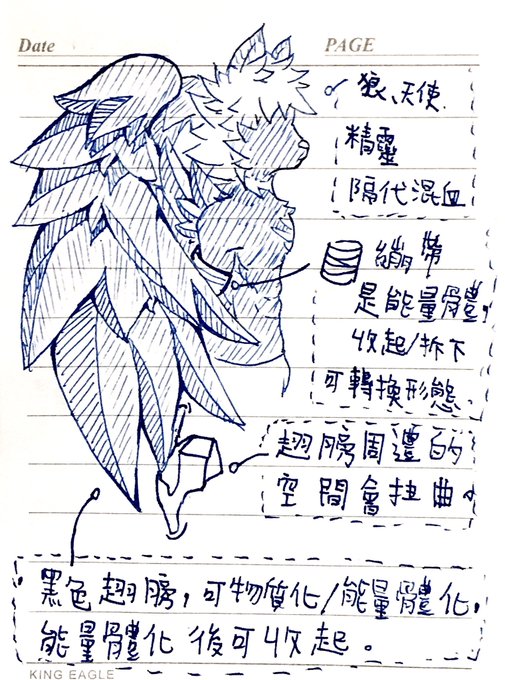 Date
PAGE
狼、天使
精靈
隔代混血
繃帶
是能量體,
收起/拆下
可轉換形態。
翅膀周邊的
空間會扭曲。
黑色翅膀,可物質化/能量體化,
能量體化後可收起。
KING EAGLE